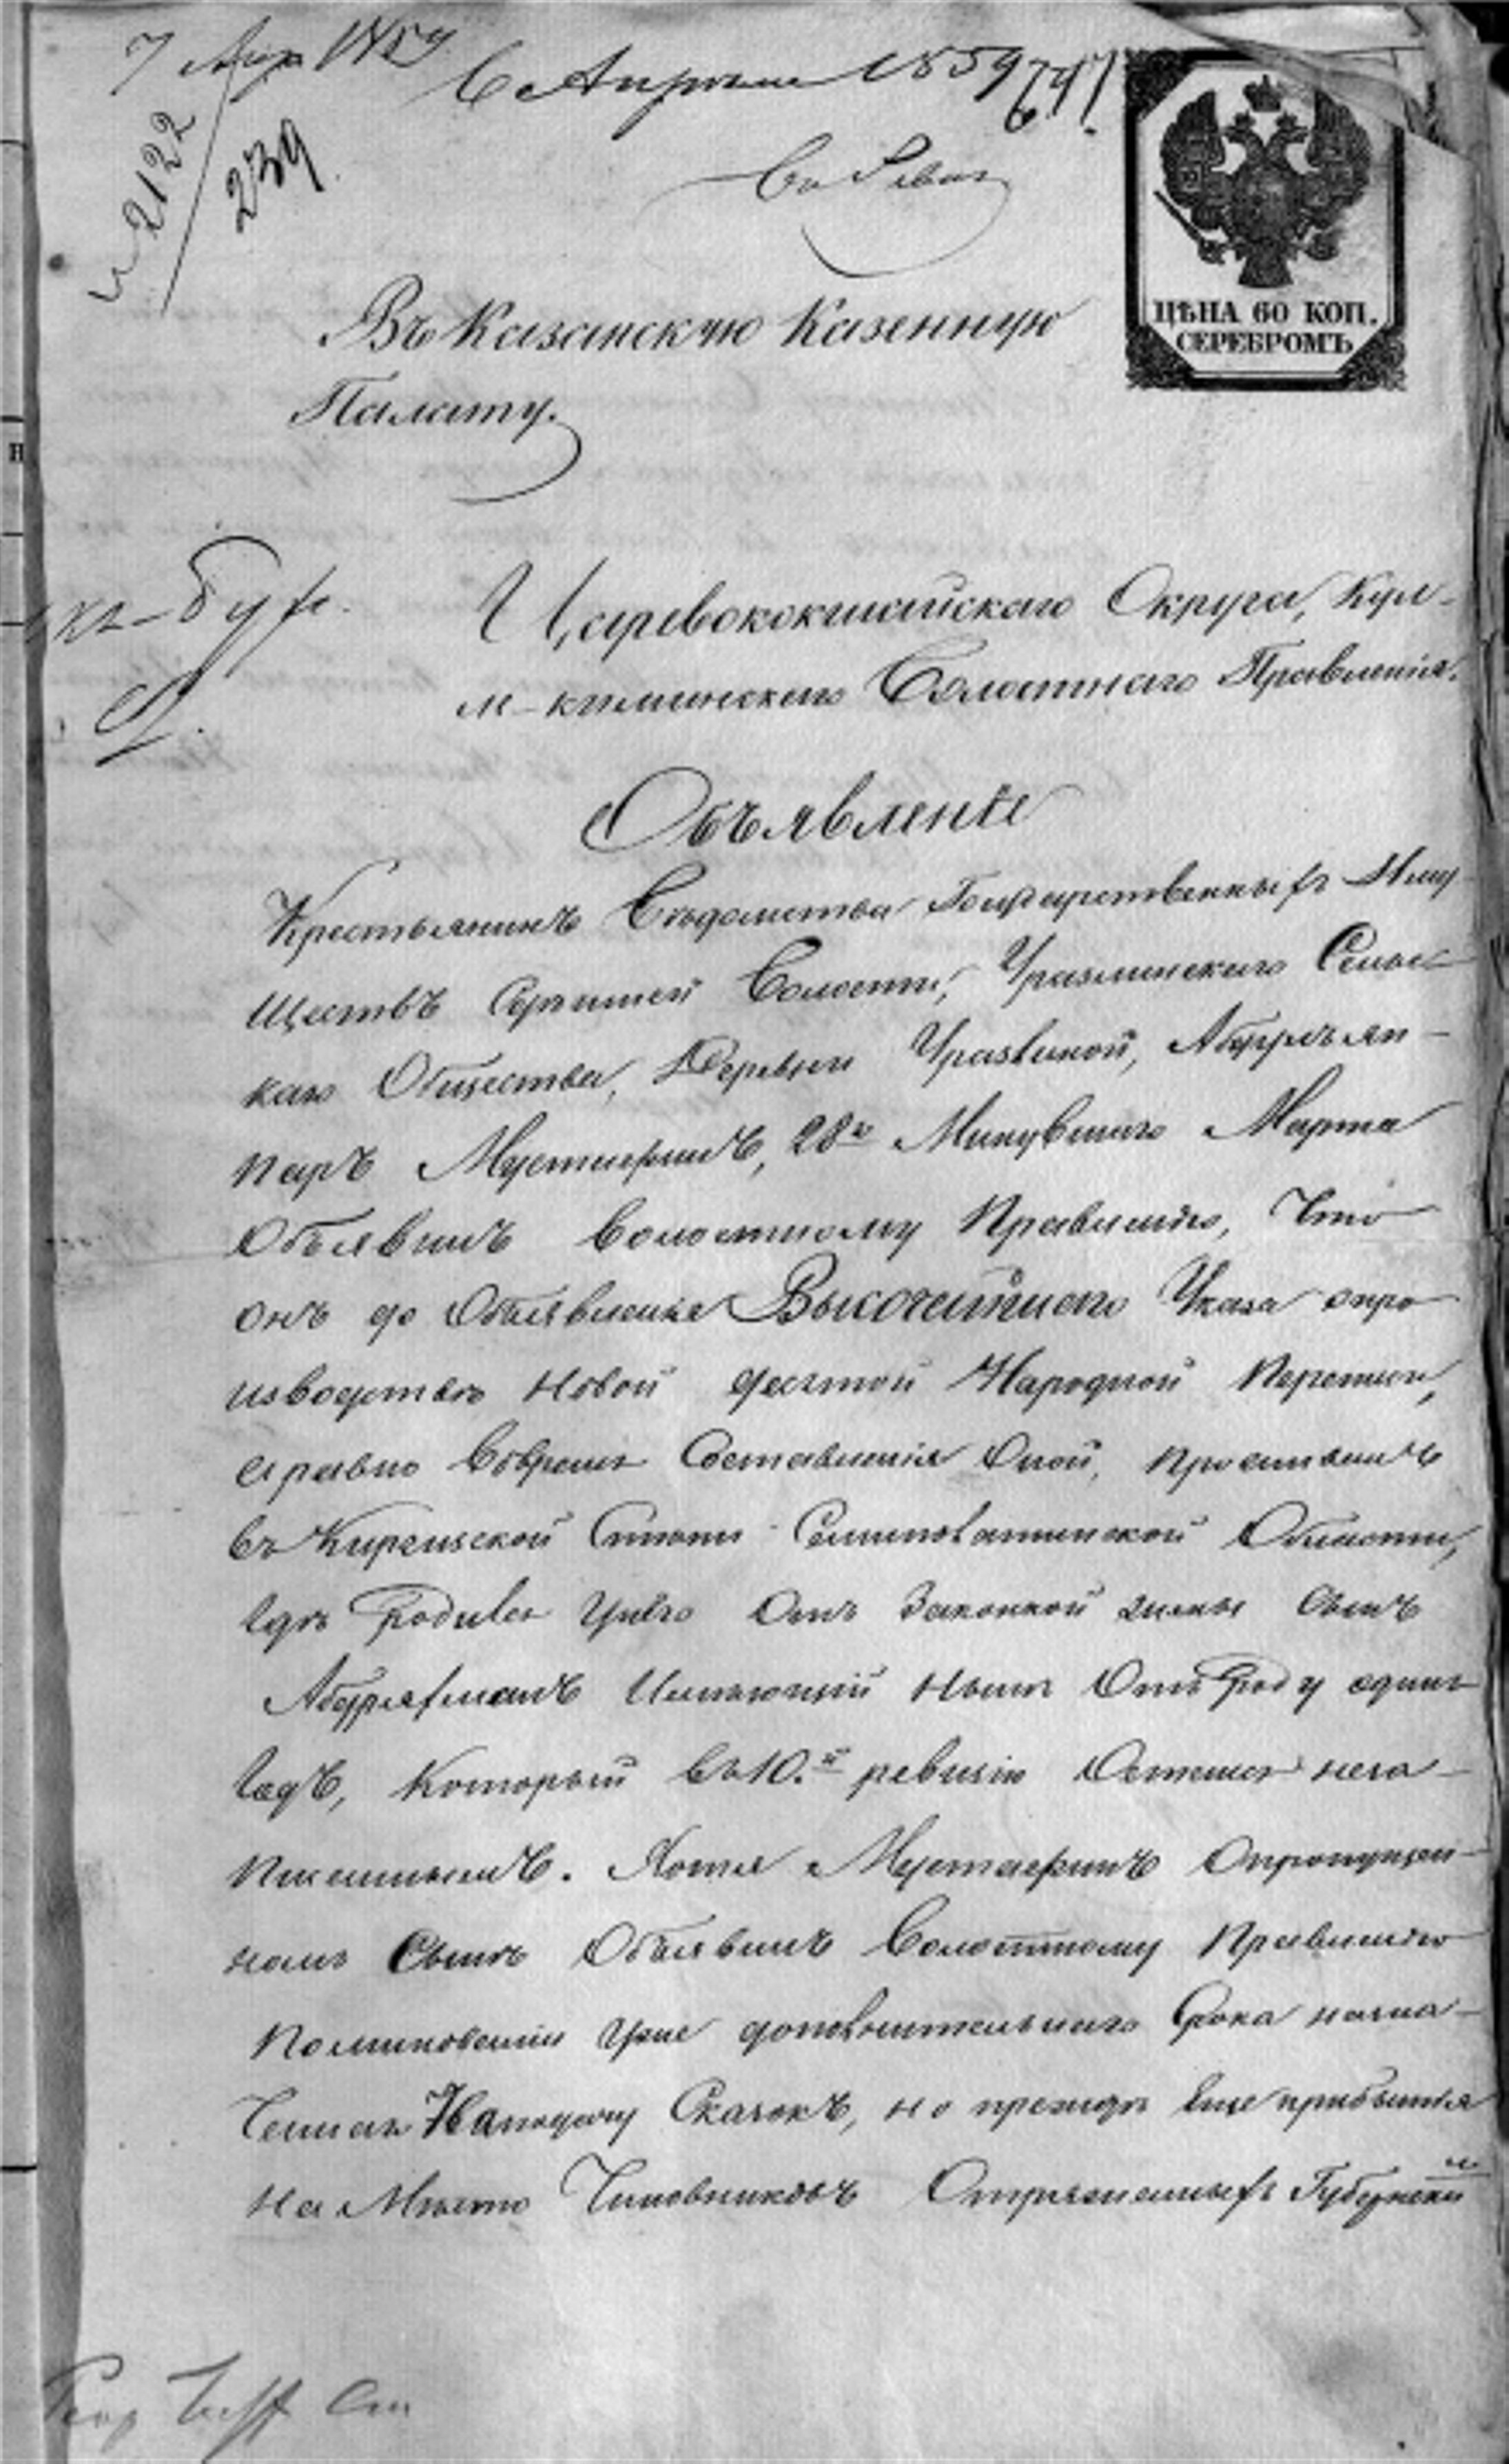 7 Апр 1859
6 Апреля 1859 641.
№ 2122
239
Въ Ревиз
ЦѢНА 60 КОП.
СЕРЕБРОМЪ
Въ Казанскую Казенную
Палату.
Царевококшайскаго Округа, Кул-
ле-киминскаго Волостнаго Правленія.
Объявленіе
Крестьянинъ Вѣдомства Государственныхъ Иму
ществъ Волости, Уразлинскаго Сельс
каго Общества, Деревни Уразлиной, Абдулъ Яп-
паръ Мустафинъ, 28го Минувшаго Марта
Объявилъ Волостному Правленію, Что
онъ до Объявленія Высочайшаго Указа опро
изводствѣ Новой десятой Народной Переписи,
а равно Вовремя Составленія Оной, проживалъ
въ Киргизской Степи Семипалатинской Области,
гдѣ Родился Унего Отъ Законной жены Сынъ
Абдрахманъ Имѣющій Нынѣ Отъ Роду одинъ
годъ, Который въ 10.й ревизіи Остался неза-
писаннымъ. Хотя Мустафинъ Опропущен-
номъ Сынѣ Объявилъ Волостному Правленію
Поминованіи Уже дополнительнаго Срока назна-
ченнаго Наподачу Сказокъ, но прежде Еще прибытія
на Мѣсто Чиновниковъ Отряженныхъ Губернски